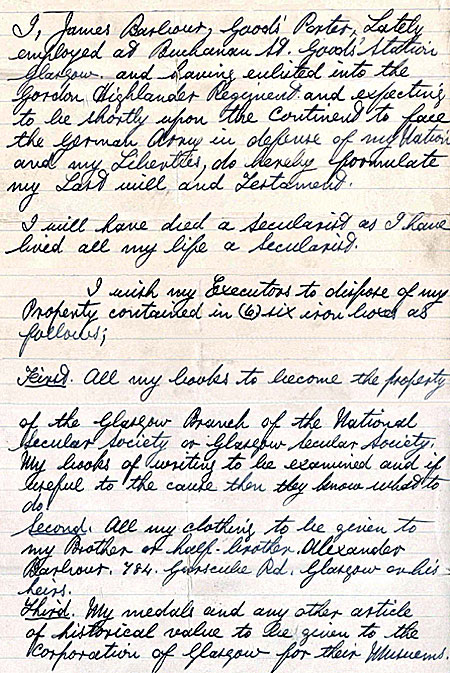 I, James Barbour, Goods' Porter, Lately
employed at Buchanan St. Goods' Station
Glasgow. and having enlisted into the
Gordon Highlander Regiment. and expecting
to be shortly upon the Continent to face
the German Army in defense of my Nation
and my Liberties, do hereby formulate
my Last will and Testament.
I will have died a Secularist as I have
lived all my life a Secularist.
I wish my Executors to dispose of my
Property contained in (6) six iron boxes as
follows;
First. All my books to become the property
of the Glasgow Branch of the National
Secular Society or Glasgow Secular Society.
My books of writing to be examined and if
useful to the cause then they know what to
do.
Second. All my clothing, to be given to
my Brother or half-brother. Alexander
Barbour. 784. Garscube Rd. Glasgow or his
heirs.
Third. My medals and any other article
of historical value to be given to the
Corporation of Glasgow for their Musuems.